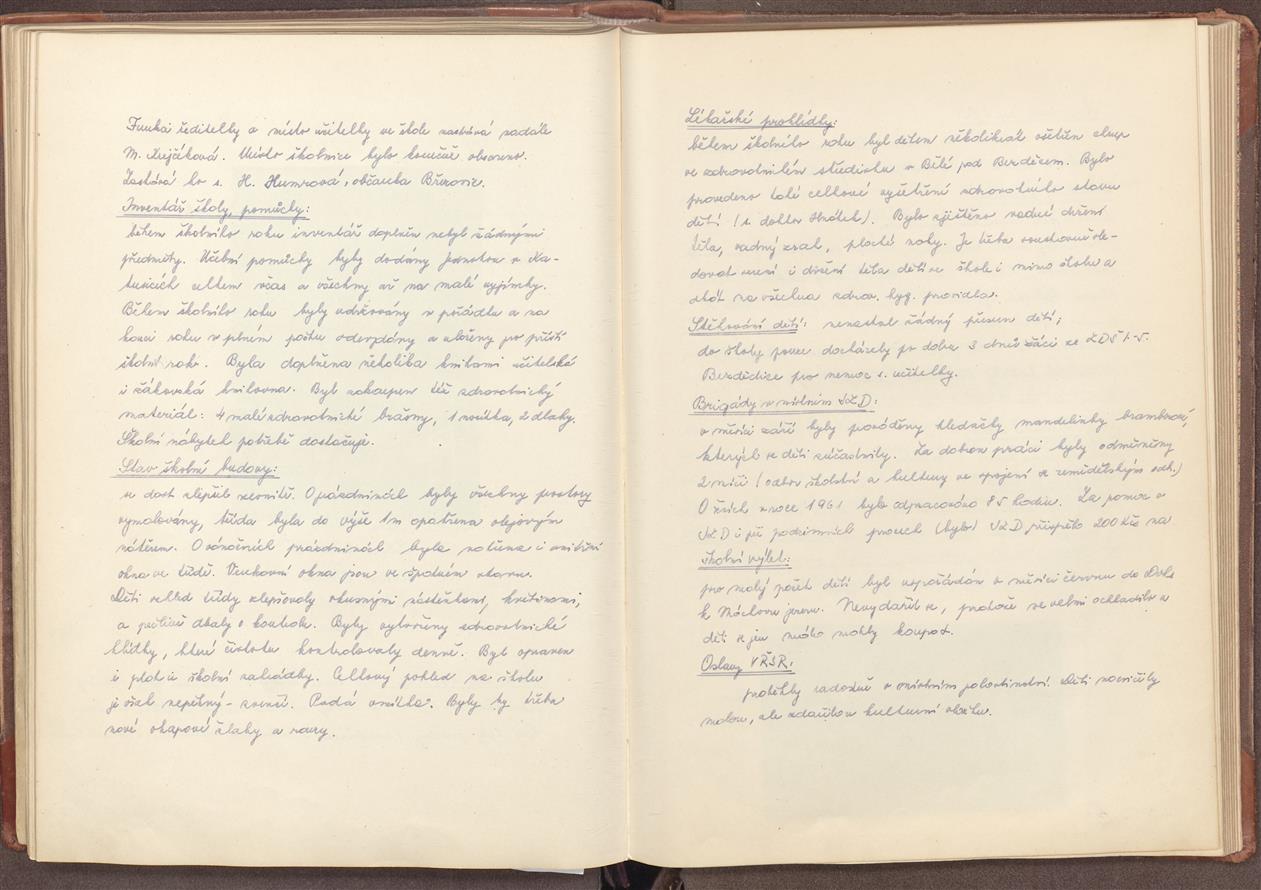 Funkci ředitelky a místo učitelky ve škole zastává nadále
M. Krejčíková. Místo školnice bylo konečně obsazeno.
Zastává ho s. H. Humrová, občanka Březovic.
Inventář školy, pomůcky:
během školního roku inventář doplněn nebyl žádnými
předměty. Učební pomůcky byly dodány Jednotou v Ka-
tusicích celkem včas a všechny až na malé vyjímky.
Během školního roku byly udržovány v pořádku a na
konci roku v plném počtu odevzdány a uloženy pro příští
školní rok. Byla doplněna několika knihami učitelská
i žákovská knihovna. Byl zakoupen též zdravotnický
materiál: 4 malé zdravotnické brašny, 1 nosítka, 2 dlahy.
Školní nábytek potřebě dostačuje.
Stav školní budovy:
se dost zlepšil zevnitř. O prázdninách byly všechny prostory
vymalovány, třída byla do výše 1m opatřena olejovým
nátěrem. O vánočních prázdninách byla natřena i vnitřní
okna ve třídě. Venkovní okna jsou ve špatném stavu.
Děti vzhled třídy zlepšovaly vkusnými nástěnkami, květinami,
a pečlivě dbaly o koutek. Byly vytvořeny zdravotnické
hlídky, které čistotu kontrolovaly denně. Byl opraven
i plot u školní zahrádky. Celkový pohled na školu
je však nepěkný - zvenčí. Padá omítka. Byly by třeba
nové okapové žlaby a roury.
Lékařské prohlídky:
během školního roku byl dětem několikrát ošetřen chrup
ve zdravotním středisku v Bělé pod Bezdězem. Bylo
provedeno také celkové vyšetření zdravotního stavu
dětí (s. doktor). Bylo zjištěno vadné držení
těla, vadný zrak, ploché nohy. Je třeba soustavně sle-
dovat sezení i držení těla dětí ve škole i mimo školu a
dbát na všechna zdrav. hyg. pravidla.
Stěhování dětí: nenastal žádný přesun dětí;
do školy pouze docházely po dobu 3 dnů žáci ze ZDŠ 1-5.
Bezdědice pro nemoc s. učitelky.
Brigády v místním JZD:
v měsíci září byly prováděny hledačky mandelinky bramborové,
kterých se děti zúčastnily. Za dobrou práci byly odměněny
2 míči (odbor školství a kultury ve spojení se zemědělským odb.)
O žních v roce 1961 bylo odpracováno 85 hodin. Za pomoc v
JZD i při podzimních pracech (bylo) JZD přispělo 200 Kčs na
školní výlet:
pro malý počet dětí byl uspořádán v měsíci červnu do Doks
k Máchovu jezeru. Nevydařil se, protože se velmi ochladilo a
děti se jen málo mohly koupat.
Oslavy VŘSR:
proběhly radostně v místním pohostinství. Děti nacvičily
malou, ale zdařilou kulturní vložku.